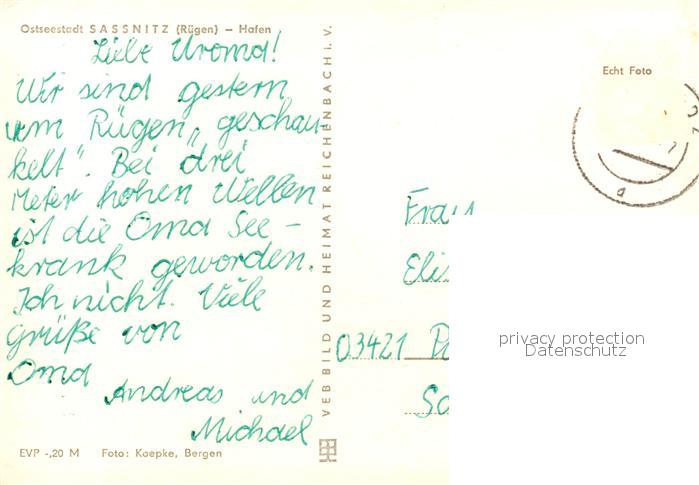 Ostseestadt SASSNITZ (Rügen) – Hafen
Liebe Uroma!
Wir sind gestern
um Rügen „geschau-
kelt". Bei drei
Meter hohen Wellen
ist die Oma See-
krank geworden.
Ich nicht. Viele
Grüße von
Oma
Andreas und
Michael
EVP -,20 M Foto: Koepke, Bergen
VEB BILD UND HEIMAT REICHENBACH i. V.
Echt Foto
Frau
03421
privacy protection
Datenschutz